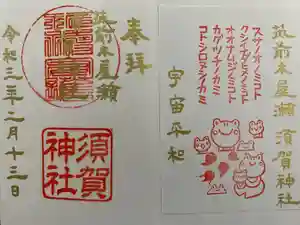 筑前木屋瀬 須賀神社
スサノオノミコト
クシイナダヒメノミコト
オオナムジノミコト
カグツチノカミ
コトシロヌシノカミ
宇宙平和
奉拝
筑前木屋瀬
須賀
神社
令和三年二月十三日